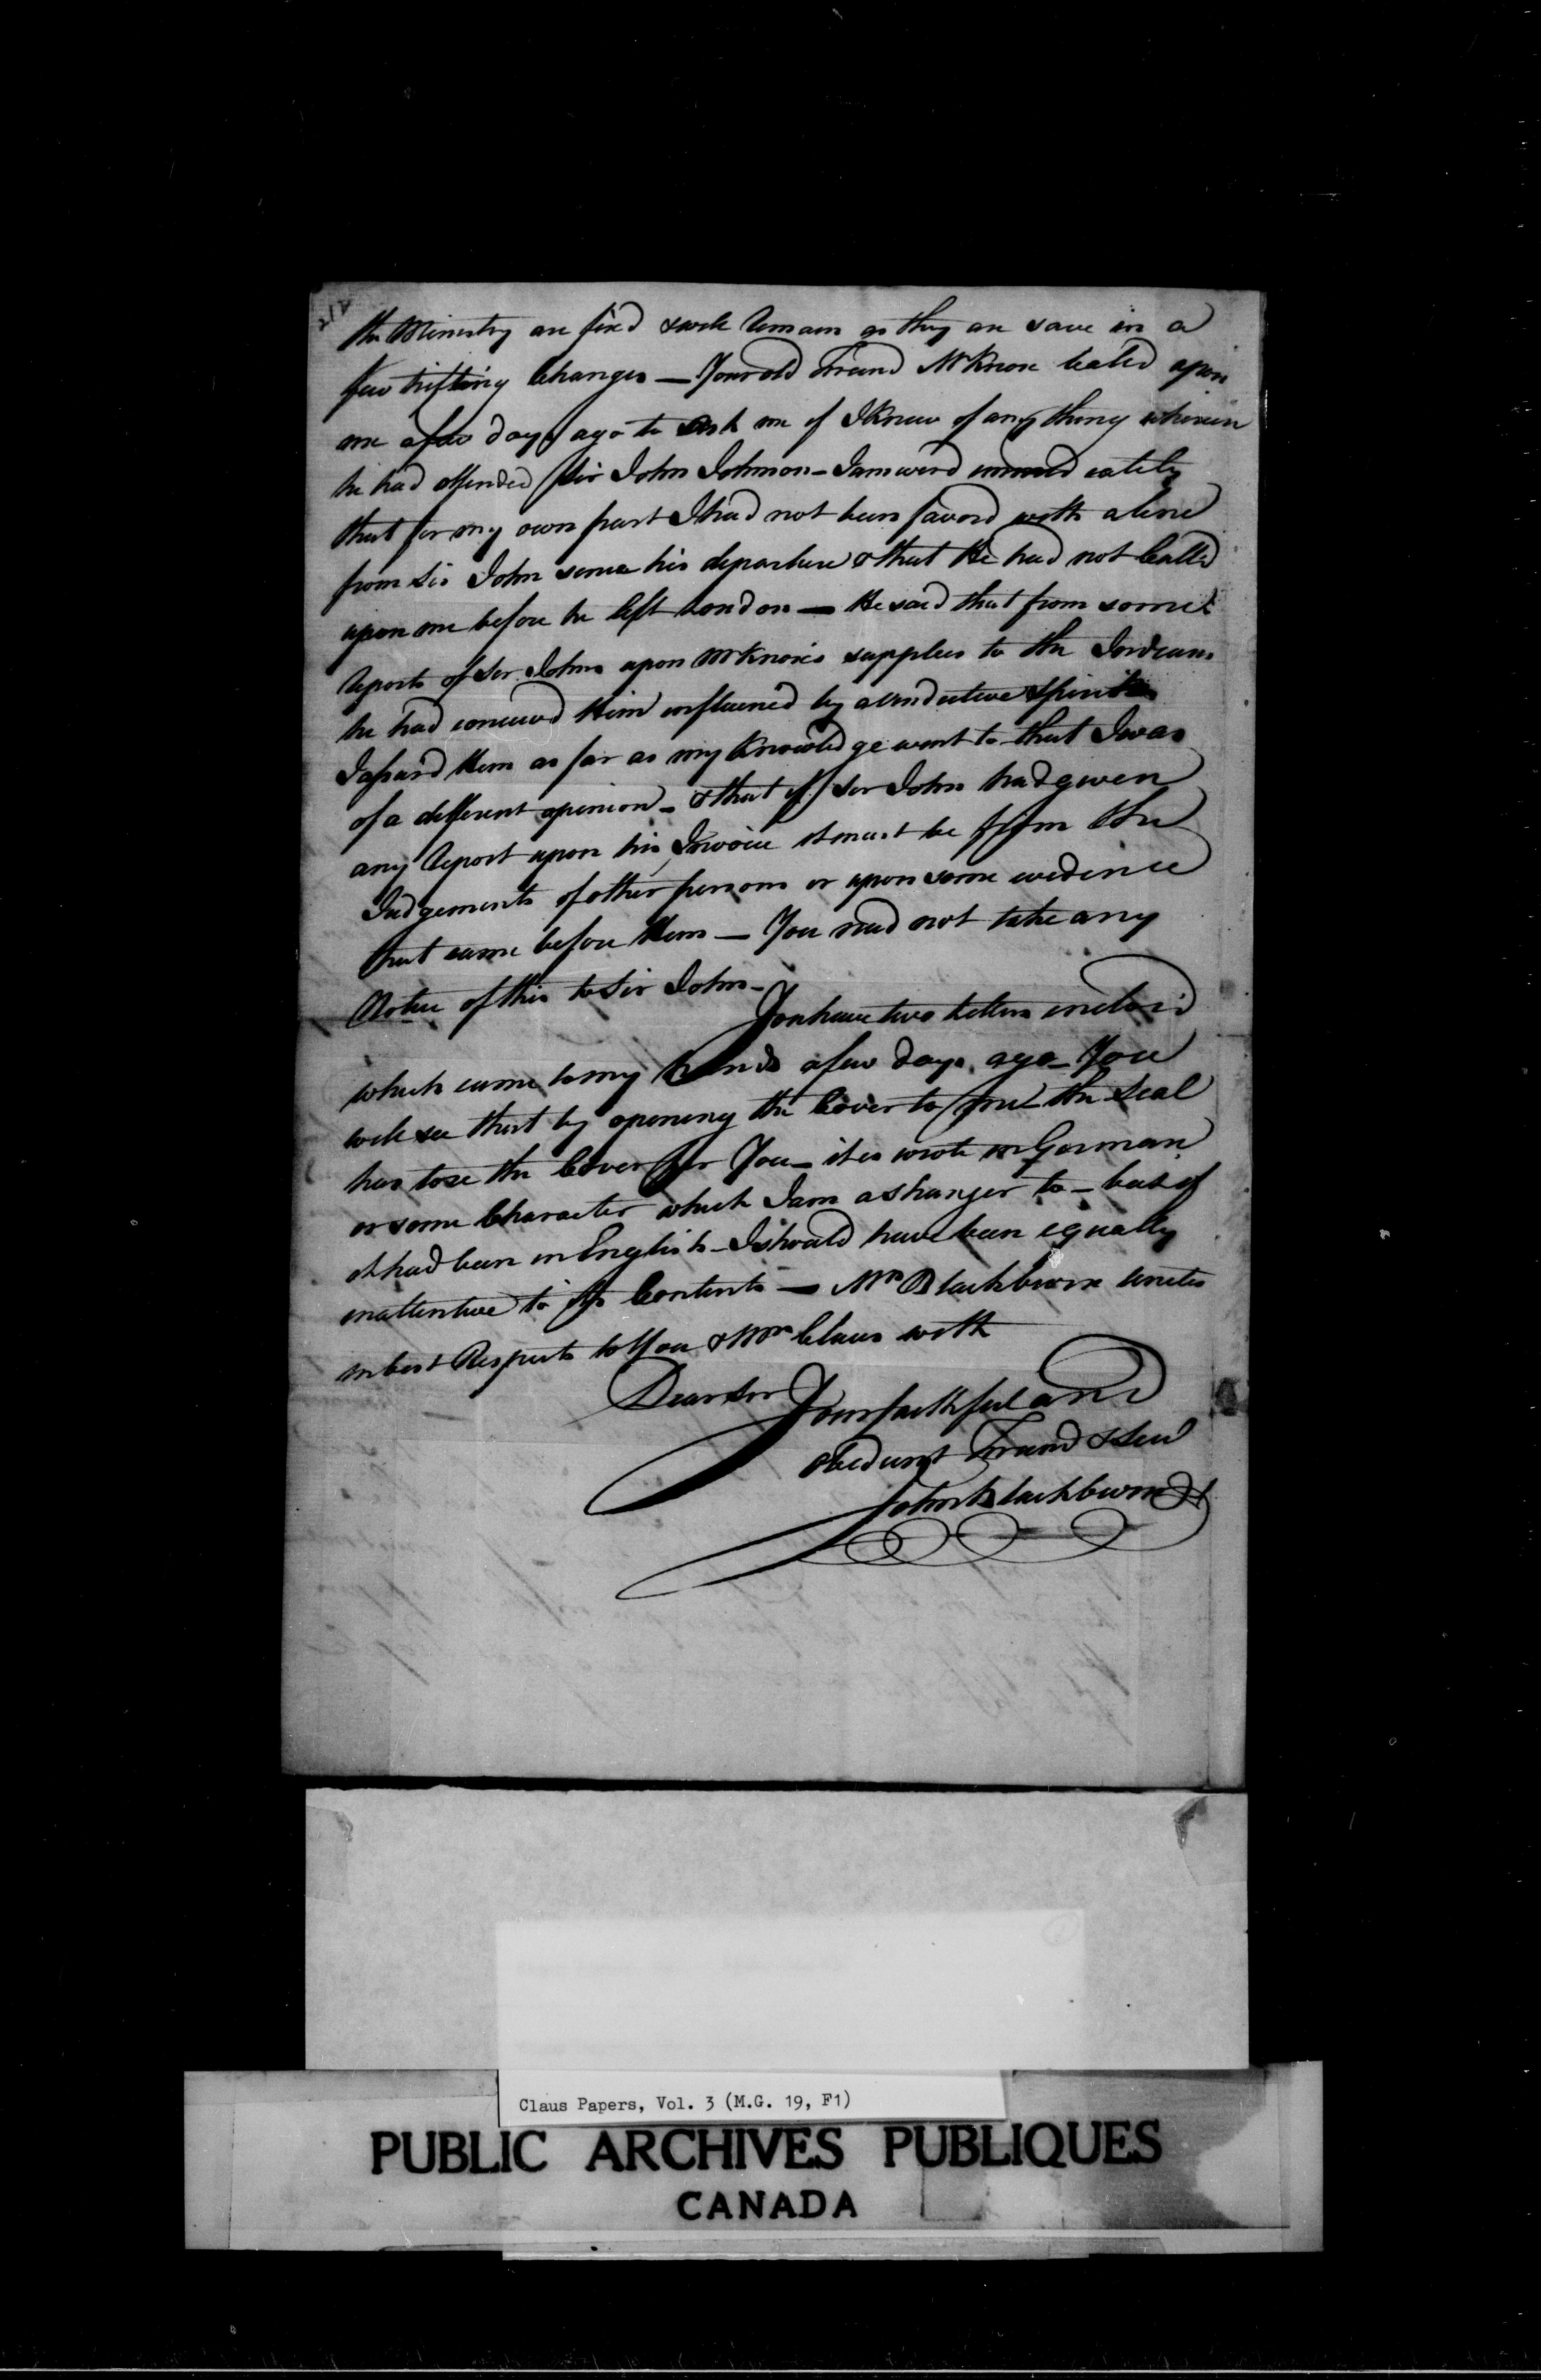 the Ministry are fix'd & will Remain as they are save in a
few trifling Changes — Your old Friend Mr Knox Called upon
me a few days ago to ask me if I Knew of any thing wherein
he had offended Sir John Johnson — I answerd immediately
that for my own part I had not been favord with a line
from Sir John since his departure & that He had not Called
upon me before he left London — He said that from some
Reports of Sir John upon Mr Knox's supplies to the Indians
he had conceived Him influenced by a vindictive Spirit
I assur'd Him as far as my Knowledge went to that I was
of a different opinion — & that if Sir John had given
any Report upon his Invoice it must be from the
Judgements of other persons or upon some evidence
that came before Him — You need not take any
Notice of this to Sir John —
You have two Letters inclos'd
which came to my Hands a few days ago — You
will see that by opening the Cover to me the Seal
has tore the Cover for You — it is wrote in German
or some Character which I am a stranger to — but if
it had been in English — I should have been equally
inattentive to its Contents — Mrs Blackburn Unites
in best Respects to You & Mrs Claus with
Dear Sir
Your faithful and
obedient Friend & Serv
John Blackburn
Claus Papers, Vol. 3 (M.G. 19, F1)
PUBLIC ARCHIVES PUBLIQUES
CANADA